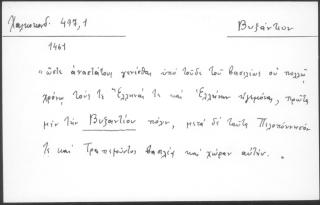 Χαλκοκονδ. 497,1 Βυζάντιον
1461
"ὥστε ἀναστάτους γενέσθαι ὑπὸ τοῦδε τοῦ βασιλέως οὐ πολλῷ
χρόνῳ τούς τε Ἕλληνάς τε καὶ Ἑλλήνων ἡγεμόνας, πρῶτα
μὲν τὴν Βυζαντίου πόλιν, μετὰ δὲ ταῦτα Πελοπόννησόν
τε καὶ Τραπεζοῦντος βασιλέα καὶ χώραν αὐτήν.